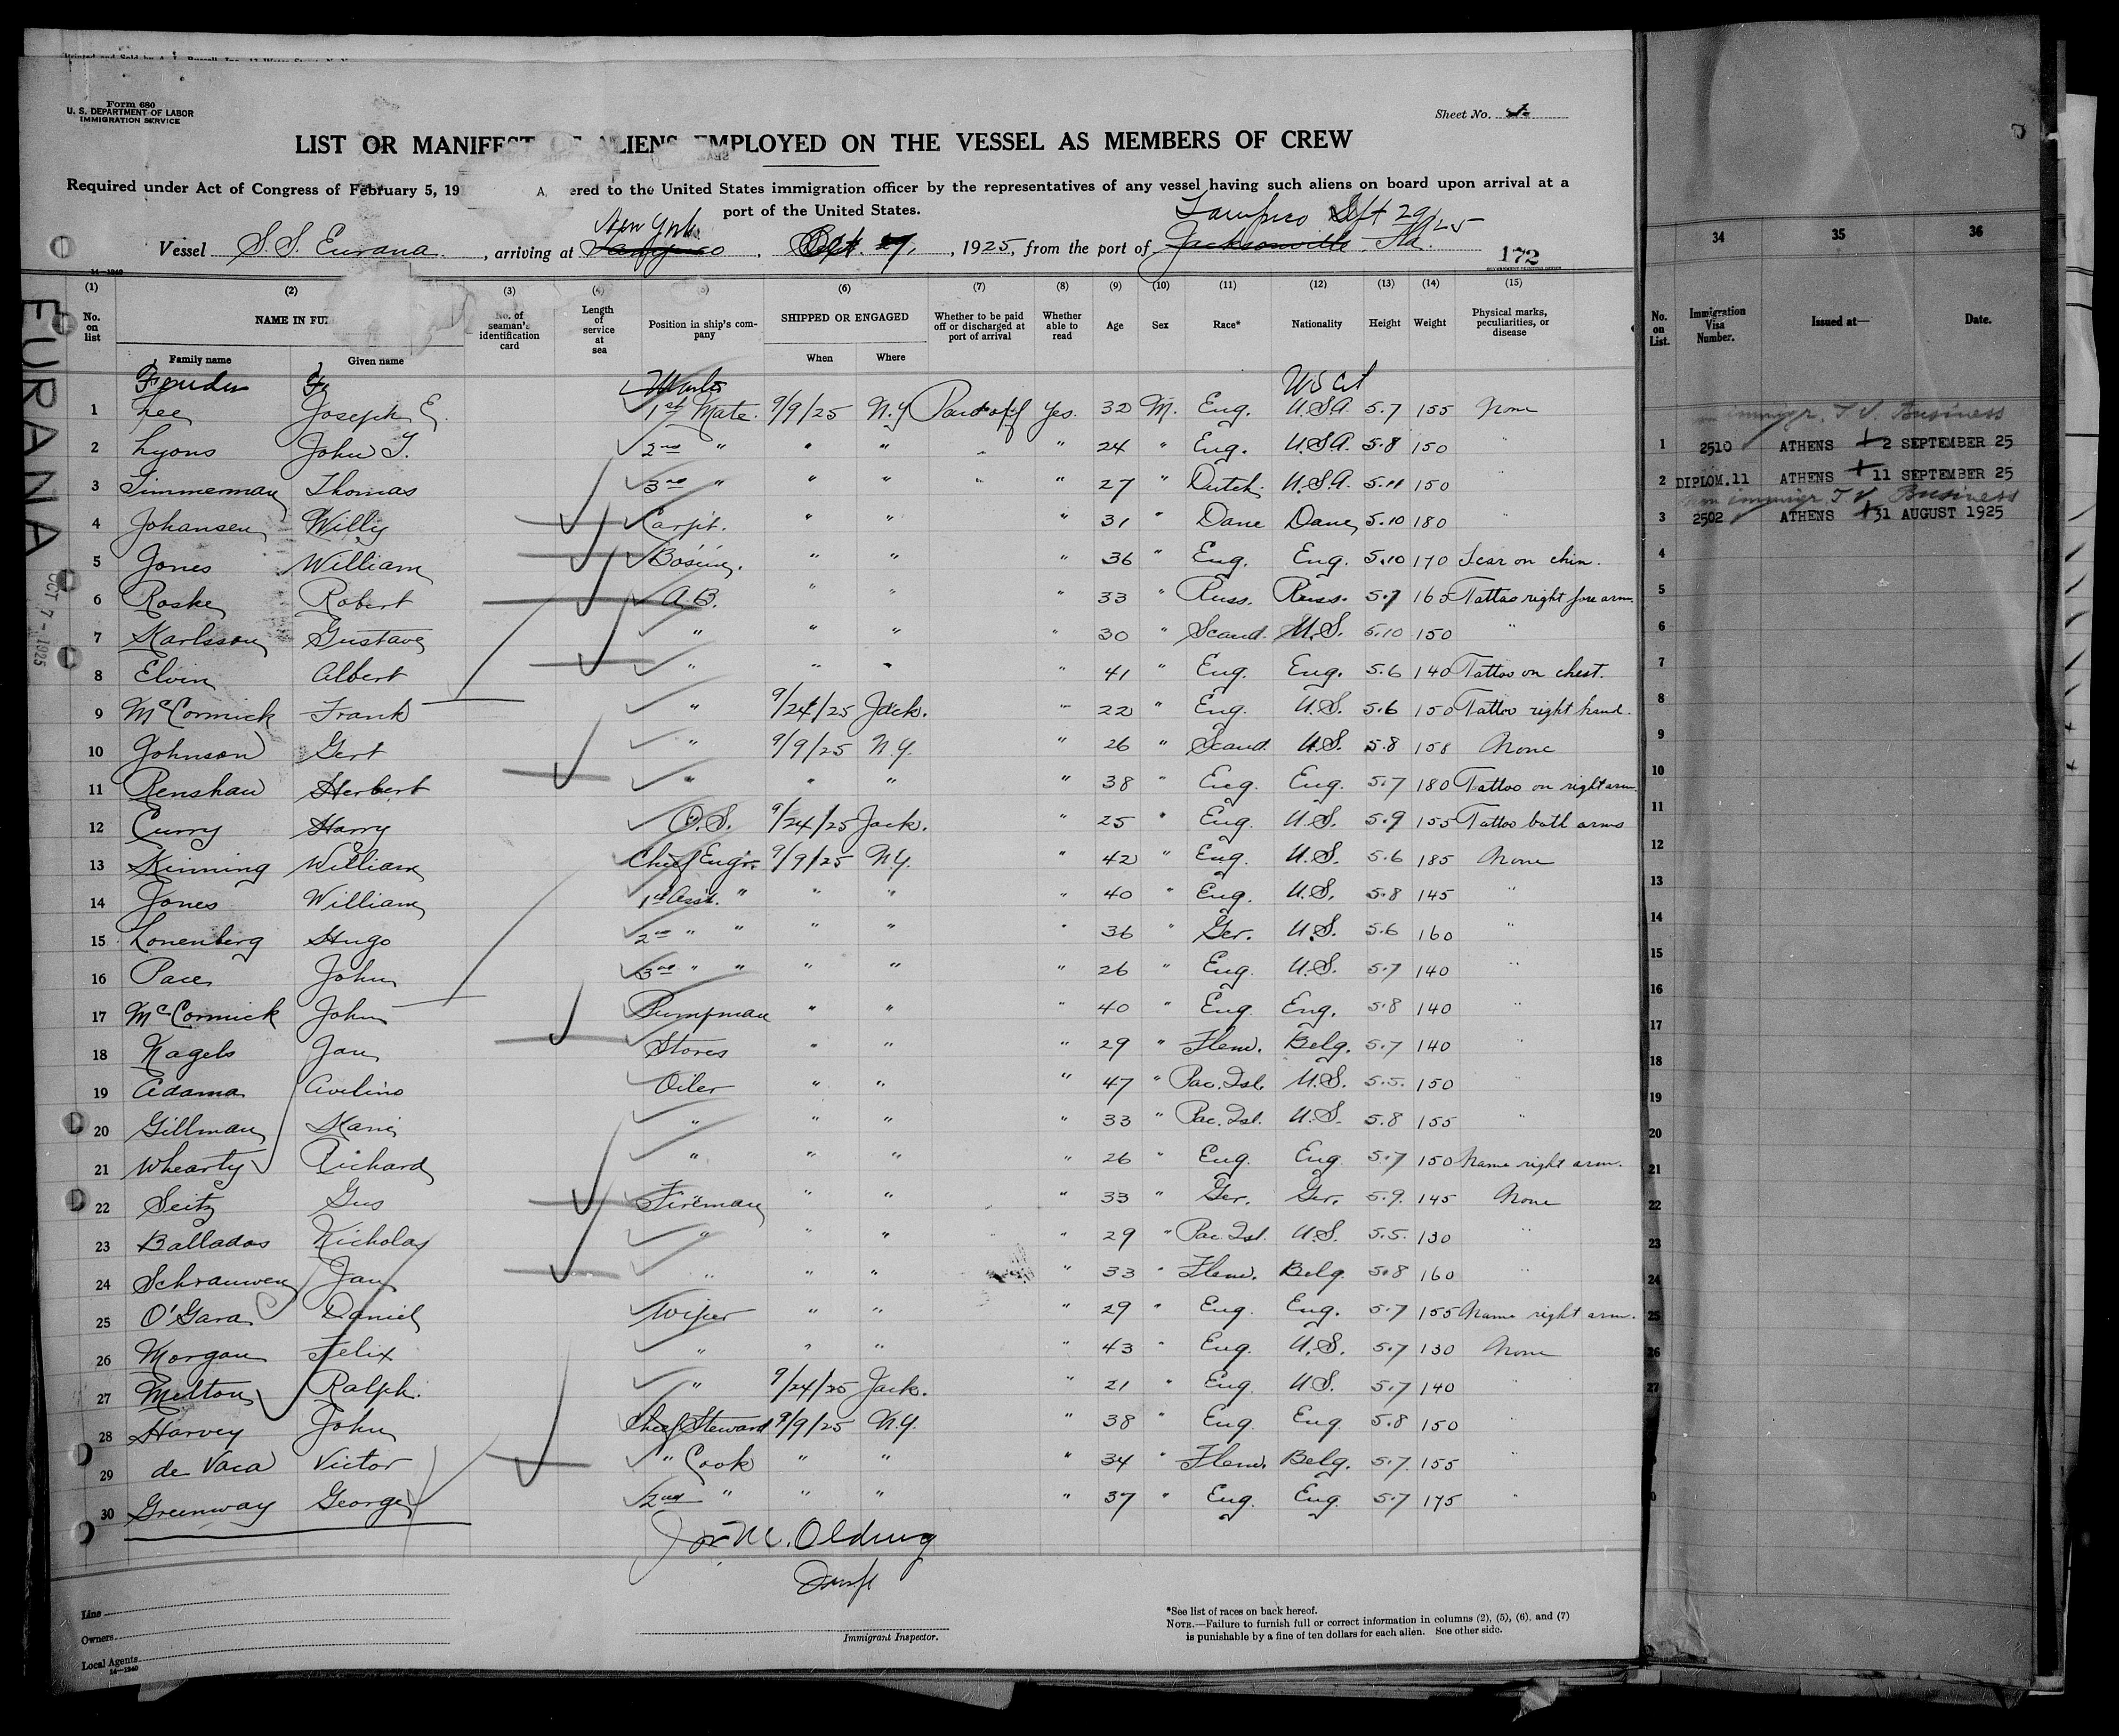 Form 680
U. S. DEPARTMENT OF LABOR
IMMIGRATION SERVICE
Sheet No. 1.
LIST OR MANIFEST OF ALIENS EMPLOYED ON THE VESSEL AS MEMBERS OF CREW
Required under Act of Congress of February 5, 19 ered to the United States immigration officer by the representatives of any vessel having such aliens on board upon arrival at a
port of the United States.
New York Tampico Sept 29/25
Vessel S.S. Eurana, arriving at Tampico, 1925, from the port of Jacksonville Fla.
172
EURANA
OCT 7 - 1925
(1) (2) (3) (4) (5) (6) (7) (8) (9) (10) (11) (12) (13) (14) (15)
No. on list NAME IN FUL No. of seaman's identification card Length of service at sea Position in ship's company SHIPPED OR ENGAGED Whether to be paid off or discharged at port of arrival Whether able to read Age Sex Race* Nationality Height Weight Physical marks, peculiarities, or disease
Family name Given name When Where
Master US Cit
1 Lee Joseph E. 1st Mate. 9/9/25 N.Y Paid off Yes. 32 M. Eng. U.S.A. 5.7 155 None
2 Lyons John T. 2nd " " " " 24 " Eng. U.S.A. 5.8 150 "
3 Timmerman Thomas 3rd " " " " " 27 " Dutch. U.S.A. 5.11 150 "
4 Johansen Willy Carpt. " " " 31 " Dane Dane 5.10 180 "
5 Jones William Bosun. " " " 36 " Eng. Eng. 5.10 170 Scar on chin.
6 Roske Robert A.B. " " " 33 " Russ. Russ. 5.7 165 Tattoo right fore arm.
7 Karlsson Gustave " " " " 30 " Scand. U.S. 5.10 150 "
8 Elvin Albert " " " " 41 " Eng. Eng. 5.6 140 Tattoo on chest.
9 McCormick Frank " 9/24/25 Jack. " 22 " Eng. U.S. 5.6 150 Tattoo right hand.
10 Johnson Gert " 9/9/25 N.Y. " 26 " Scand. U.S. 5.8 158 None
11 Renshaw Herbert " " " " 38 " Eng. Eng. 5.7 180 Tattoo on right arm.
12 Curry Harry O.S. 9/24/25 Jack. " 25 " Eng. U.S. 5.9 155 Tattoo both arms
13 Kinning William Chief Engr. 9/9/25 N.Y. " 42 " Eng. U.S. 5.6 185 None
14 Jones William 1st Asst. " " " " 40 " Eng. U.S. 5.8 145 "
15 Lonenberg Hugo 2nd " " " " " 36 " Ger. U.S. 5.6 160 "
16 Pace John 3rd " " " " " 26 " Eng. U.S. 5.7 140 "
17 McCormick John Pumpman " " " 40 " Eng Eng. 5.8 140 "
18 Nagels Jan Stores " " " 29 " Flem. Belg. 5.7 140 "
19 Adama Avelino Oiler " " " 47 " Pac. Isl. U.S. 5.5. 150 "
20 Gillman " " " " 33 " Pac. Isl. U.S. 5.8 155 "
21 Whearty Richard " " " " 26 " Eng. Eng. 5.7 150 Name right arm.
22 Seitz Gus Fireman " " " 33 " Ger. Ger. 5.9. 145 None
23 Ballados Nicholas " " " " 29 " Pac Isl. U.S. 5.5. 130 "
24 Schrauwen Jan " " " " 33 " Flem. Belg. 5.8 160 "
25 O'Gara Daniel Wiper " " " 29 " Eng. Eng. 5.7 155 Name right arm.
26 Morgan Felix " " " " 43 " Eng. U.S. 5.7 130 None
27 Melton Ralph. " 9/24/25 Jack. " 21 " Eng U.S. 5.7 140 "
28 Harvey John Chief Steward 9/9/25 N.Y. " 38 " Eng Eng 5.8 150 "
29 de Vaca Victor " Cook " " " 34 " Flem. Belg. 5.7. 155 "
30 Greenway George 2nd " " " " 37 " Eng. Eng. 5.7 175 "
Line
Owners
Local Agents
14—1240
Immigrant Inspector.
*See list of races on back hereof.
NOTE.—Failure to furnish full or correct information in columns (2), (5), (6), and (7)
is punishable by a fine of ten dollars for each alien. See other side.
34 35 36
No. on List. Immigration Visa Number. Issued at— Date.
immigr. T.V. Business
1 2510 ATHENS 2 SEPTEMBER 25
2 DIPLOM.11 ATHENS 11 SEPTEMBER 25
non immigr. T.V. Business
3 2502 ATHENS 31 AUGUST 1925
4
5
6
7
8
9
10
11
12
13
14
15
16
17
18
19
20
21
22
23
24
25
26
27